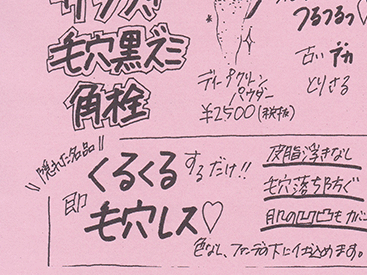 ザラつき
毛穴黒ズミ
角栓
ディープクリーン
パウダー
¥2,500(税抜)
つるつるっ
古い
とりさる
"隠れた名品"
くるくるするだけ!!
即毛穴レス♡
皮脂浮きなし
毛穴落ち防ぐ
肌の凹凸もカバ
色なし、ファンデの下に仕込めます。